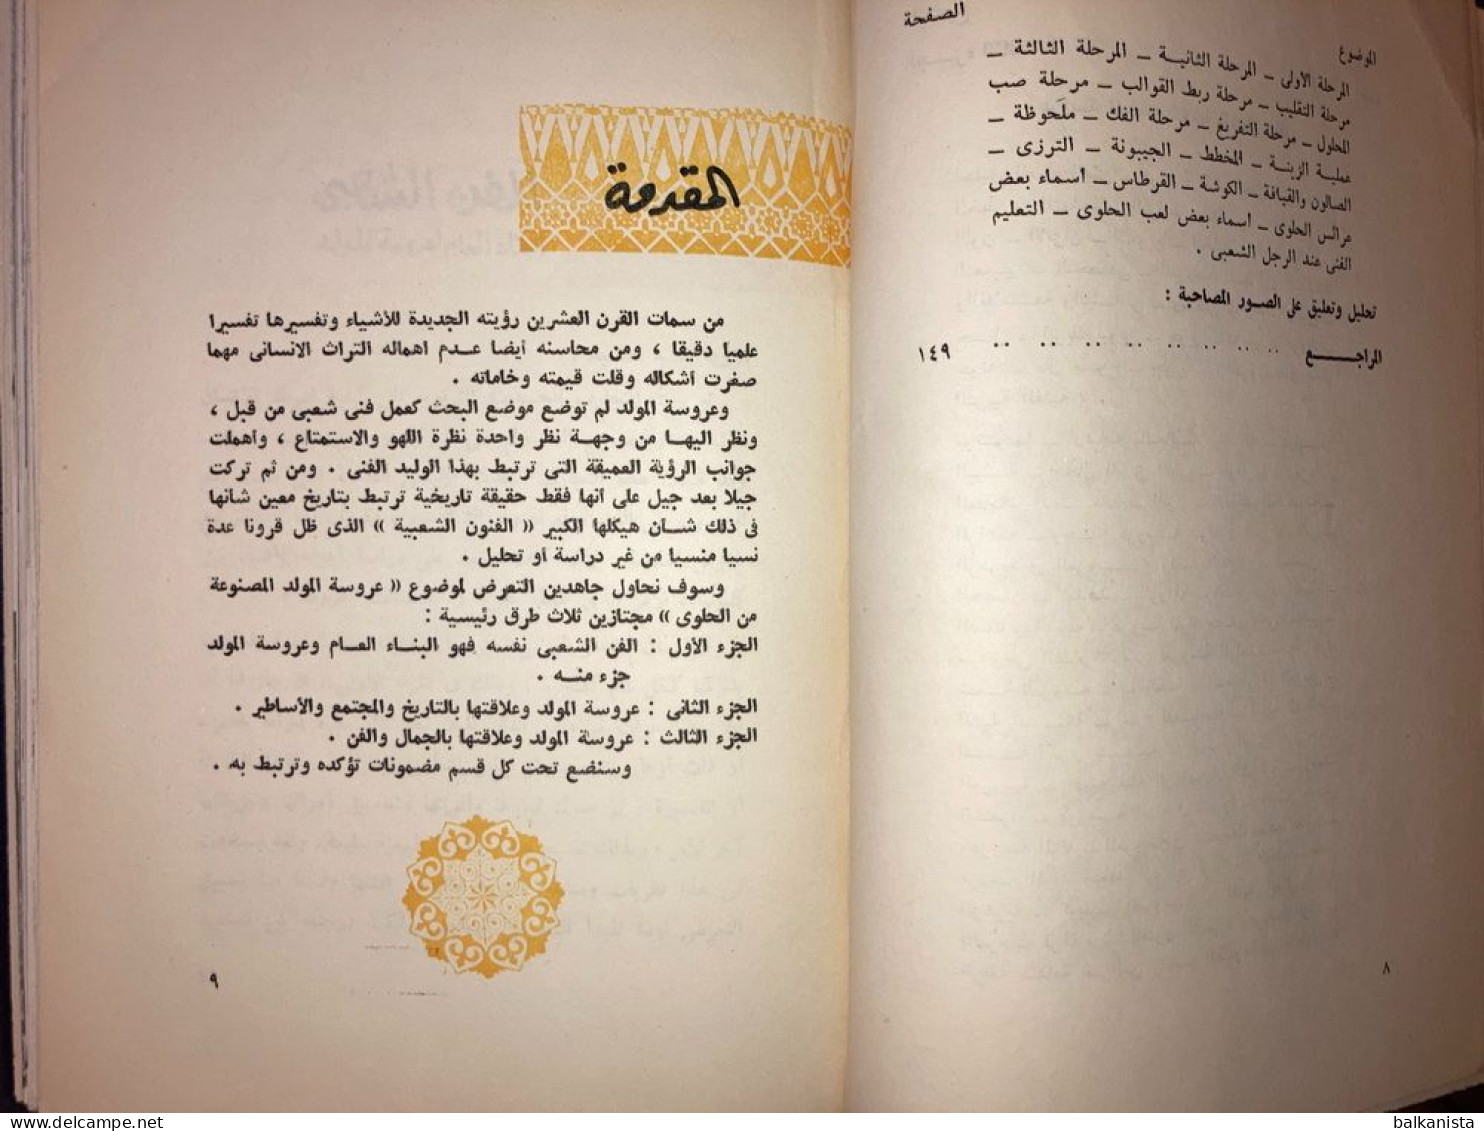 الموضوع
الصفحة
المرحلة الأولى ــ المرحلة الثانيــة ــ المرحلة الثالثة ــ
مرحلة التقليب ــ مرحلة ربط القوالب ــ مرحلة صب
المحلول ــ مرحلة التفريغ ــ مرحلة الفك ــ ملحوظة ــ
عملية الزينة ــ المخطط ــ الجيبونة ــ الترزى ــ
الصالون والقيافة ــ الكوشة ــ القرطاس ــ أسماء بعض
عرائس الحلوى ــ أسماء بعض لعب الحلوى ــ التعليم
الفنى عند الرجل الشعبى .
تحليل وتعليق على الصور المصاحبة :
المراجــــع .. .. .. .. .. .. .. .. ١٤٩
٨
المقدمة
من سمات القرن العشرين رؤيته الجديدة للأشياء وتفسيرها تفسيرا
علميا دقيقا ، ومن محاسنه أيضا عــدم اهماله التراث الانسانى مهما
صغرت أشكاله وقلت قيمته وخاماته .
وعروسة المولد لم توضع موضع البحث كعمل فنى شعبى من قبل ،
ونظر اليهــا من وجهــة نظر واحدة نظرة اللهو والاستمتاع ، وأهملت
جوانب الرؤية العميقة التى ترتبط بهذا الوليد الفنى . ومن ثم تركت
جيلا بعد جيل على أنها فقط حقيقة تاريخية ترتبط بتاريخ معين شأنها
فى ذلك شــأن هيكلها الكبير « الفنون الشعبية » الذى ظل قرونا عدة
نسيا منسيا من غير دراسة أو تحليل .
وسوف نحاول جاهدين التعرض لموضوع « عروسة المولد المصنوعة
من الحلوى » مجتازين ثلاث طرق رئيسية :
الجزء الأول : الفن الشعبى نفسه فهو البنــاء العــام وعروسة المولد
جزء منــه .
الجزء الثانى : عروسة المولد وعلاقتها بالتاريخ والمجتمع والأساطير .
الجزء الثالث : عروسة المولد وعلاقتها بالجمال والفن .
وسنضع تحت كل قسم مضمونات تؤكده وترتبط به .
٩
www.delcampe.net
balkanista